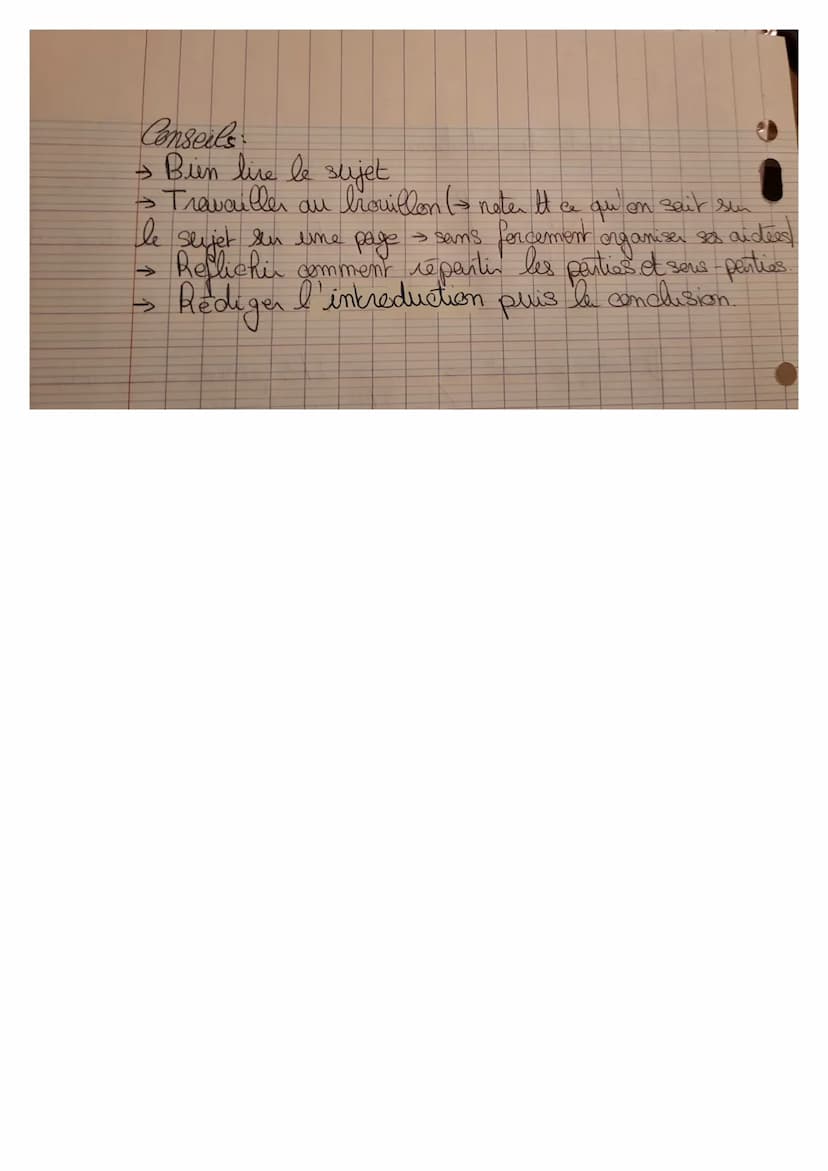 Conseils:
→ Bien lire le sujet
→ Travailler au brouillon (→ noter tt ce qu'on sait sur
le sujet sur une page → sans forcement organiser ses aidées)
→ Reflichir comment répartir les parties et sous-parties.
→ Rédiger l'introduction puis la conclusion.